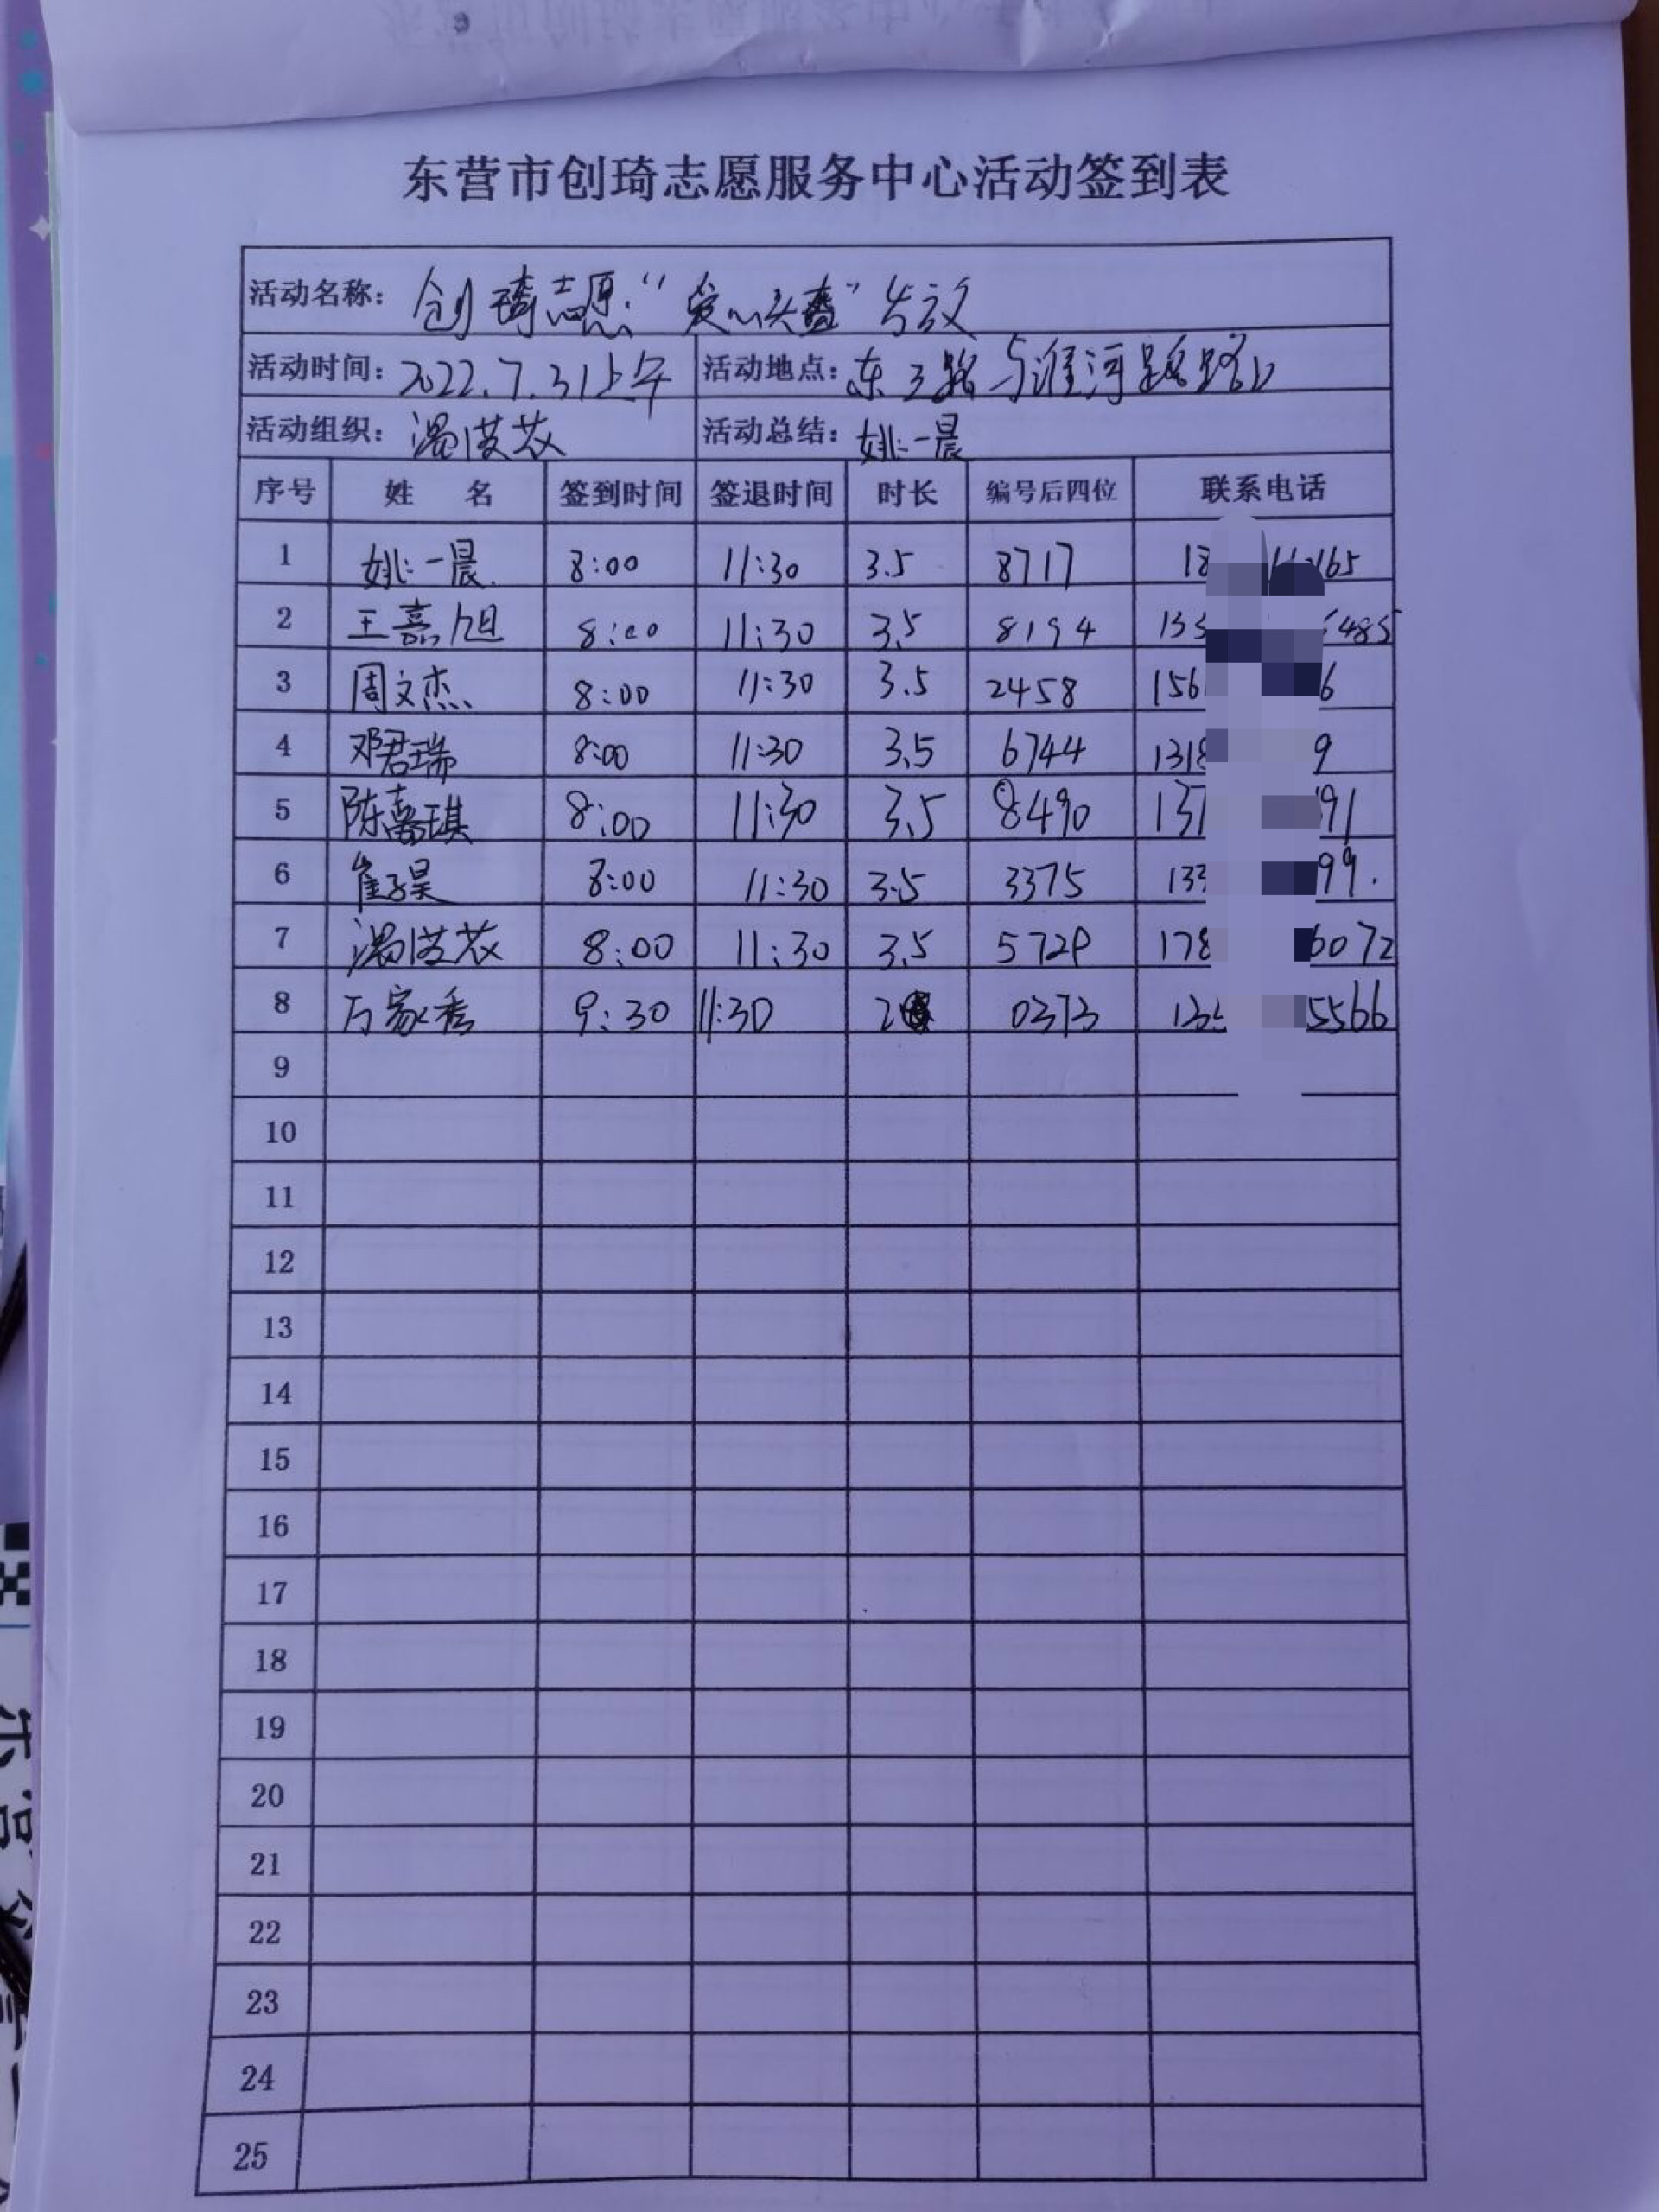 东营市创琦志愿服务中心活动签到表
活动名称: 创琦志愿"爱心头盔"发放
活动时间: 2022.7.31上午 活动地点: 东三路与淮河路路口
活动组织: 温 活动总结: 姚一晨
序号 姓 名 签到时间 签退时间 时长 编号后四位 联系电话
1 姚一晨 8:00 11:30 3.5 8717 18 165
2 王嘉旭 8:00 11:30 3.5 8194 133 6485
3 周文杰 8:00 11:30 3.5 2458 156 6
4 邓君瑞 8:00 11:30 3.5 6744 1318 9
5 陈嘉琪 8:00 11:30 3.5 8490 137 91
6 崔子昊 8:00 11:30 3.5 3375 133 99.
7 温 8:00 11:30 3.5 5729 178 6072
8 万家秀 9:30 11:30 2 0373 13 5566
9
10
11
12
13
14
15
16
17
18
19
20
21
22
23
24
25